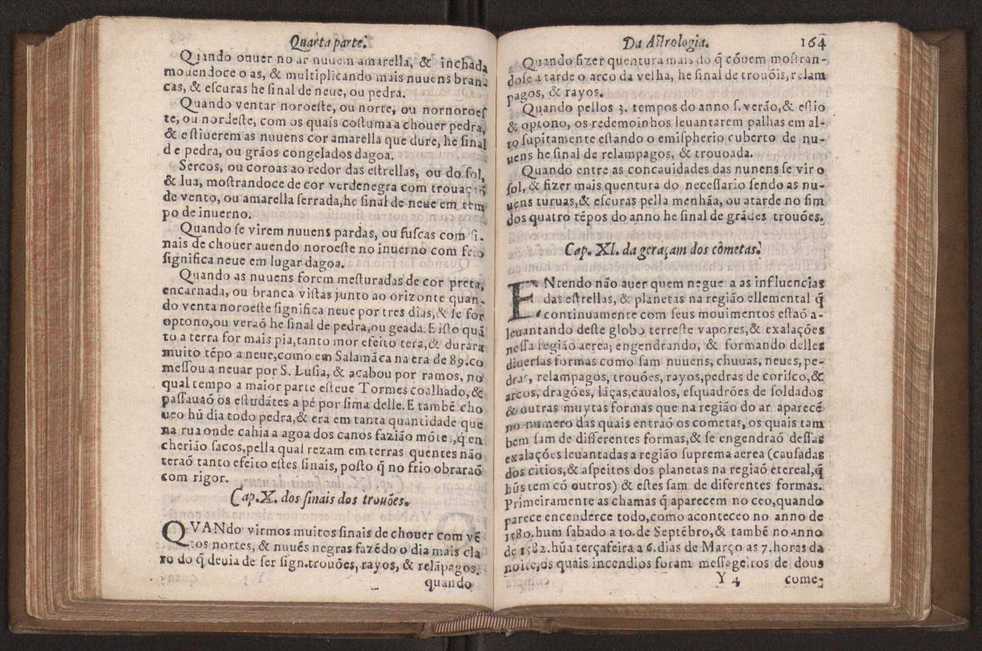 Quarta parte.
Quando ouuer no ar nuuem amarella, & inchada
mouendoce o as, & multiplicando mais nuuens bran-
cas, & escuras he sinal de neue, ou pedra.
Quando ventar noroeste, ou norte, ou nornoroes
te, ou nordeste, com os quais costuma a chouer pedra,
& estiuerem as nuuens cor amarella que dure, he sinal
de pedra, ou grãos congelados dagoa.
Sercos, ou coroas ao redor das estrellas, ou do sol,
& lua, mostrandoce de cor verdenegra com
de vento, ou amarella serrada, he sinal de neue em tem
po de inuerno.
Quando se virem nuuens pardas, ou fuscas com si-
nais de chouer auendo noroeste no inuerno com frio
significa neue em lugar dagoa.
Quando as nuuens forem mesturadas de cor preta,
encarnada, ou branca vistas junto ao orizonte quan-
do venta noroeste significa neue por tres dias, & se for
optono, ou veraõ he sinal de pedra, ou geada. E isto quã
to a terra for mais pia, tanto mor efeito tera, & durara
muito tẽpo a neue, como em Salamãca na era de 89. co
messou a neuar por S. Lusia, & acabou por ramos, no
qual tempo a maior parte esteue Tormes coalhado, &
passauaõ os estudãtes a pé por sima delle. E tambẽ cho
ueo hũ dia todo pedra, & era em tanta quantidade que
na rua onde cahia a agoa dos canos fazião mõtes, q̃ en
cherião sacos, pella qual rezam em terras quentes não
teraõ tanto efeito estes sinais, posto q̃ no frio obraraõ
com rigor.
Cap. X. dos sinais dos trouões.
QVANdo virmos muitos sinais de chouer com vẽ
tos nortes, & nuuẽs negras fazẽdo o dia mais cla
ro do q̃ deuia de ser sign. trouões, rayos, & relãpagos.
quando
Da Astrologia. 164
Quando fizer quentura mais do q̃ cõuem mostran-
dose a tarde o arco da velha, he sinal de trouõis, relam
pagos, & rayos.
Quando pellos 3. tempos do anno s. verão, & estio
& optono, os redemoinhos leuantarem palhas em al-
to supitamente estando o emispherio cuberto de nu-
uens he sinal de relampagos, & trouoada.
Quando entre as concauidades das nuuens se vir o
sol, & fizer mais quentura do necessario sendo as nu-
uens turuas, & escuras pella menhãa, ou atarde no fim
dos quatro tẽpos do anno he sinal de grãdes trouões.
Cap. XI. da geraçam dos cõmetas.
ENtendo não auer quem negue a as influencias
das estrellas, & planetas na região ellemental q̃
continuamente com seus mouimentos estaõ a-
leuantando deste globo terreste vapores, & exalações
nessa região aerea, engendrando, & formando delles
diuersas formas como sam nuuens, chuuas, neues, pe-
dras, relampagos, trouões, rayos, pedras de corisco, &
arcos, dragões, lãças, caualos, esquadrões de soldados
& outras muytas formas que na região do ar aparecẽ
no numero das quais entraõ os cometas, os quais tam
bem sam de differentes formas, & se engendraõ dessas
exalações leuantadas a região suprema aerea (causadas
dos citios, & aspeitos dos planetas na região etereal, q̃
hũs tem cõ outros) & estes sam de diferentes formas.
Primeiramente as chamas q̃ aparecem no ceo, quando
parece encenderce todo, como aconteceo no anno de
1580. hum sabado a 10. de Septẽbro, & tambẽ no anno
de 1582. hũa terçafeira a 6. dias de Março as 7. horas da
noite, os quais incendios foram messageiros de dous
Y 4 come-